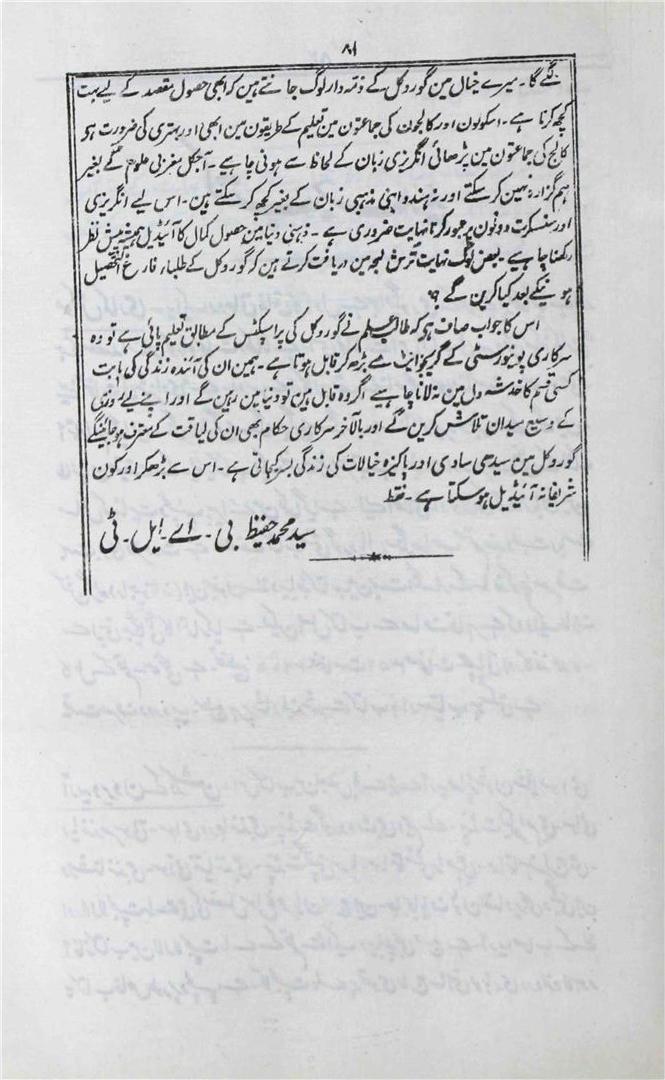 ۸۱
لگے گا۔ میرے خیال مین گوروکل کے ذمہ دار لوگ جانتے ہین کہ ابھی حصول مقصد کے لیے بہت
کچھ کرنا ہے۔ اسکولون اور کالجون کی جماعتون مین تعلیم کے طریقون مین ابھی اور بہتری کی ضرورت ہو
کالج کی جماعتون مین پڑھائی انگریزی زبان کے لحاظ سے ہونی چاہیے۔ آجکل مغربی علوم کے بغیر
ہم گزارہ نہین کر سکتے اور نہ ہندو اپنی مذہبی زبان کے بغیر کچھ کر سکتے ہین۔ اس لیے انگریزی
اور سنسکرت دونون پر عبور کرنا نہایت ضروری ہے۔ ذہنی دنیا مین حصول کمال کا آئیڈیل ہمیشہ پیش نظر
رکھنا چاہیے۔ بعض لوگ نہایت ترش لہجہ مین دریافت کرتے ہین کہ گوروکل کے طلباء فارغ التحصیل
ہونیکے بعد کیا کرین گے ؟
اس کا جواب صاف ہو کہ طالب علم نے گوروکل کی پراسپکٹس کے مطابق تعلیم پائی ہے تو وہ
سرکاری یونیورسٹی کے گریجوایٹ سے بڑھ کر قابل ہوتا ہے۔ ہمین ان کی آئندہ زندگی کی بابت
کسی قسم کا خدشہ دل مین نہ لانا چاہیے اگر وہ قابل ہین تو دنیا مین رہین گے اور اپنے لیے روزی
کے وسیع میدان تلاش کرین گے اور بالآخر سرکاری حکام بھی ان کی لیاقت کے معترف ہو جائینگے
گوروکل مین سیدھی سادی اور پاکیزہ خیالات کی زندگی بسر کیجاتی ہے۔ اس سے بڑھکر اور کون
شریفانہ آئیڈیل ہو سکتا ہے۔ فقط
سید محمد حفیظ بی۔ اے۔ ایل۔ ٹی